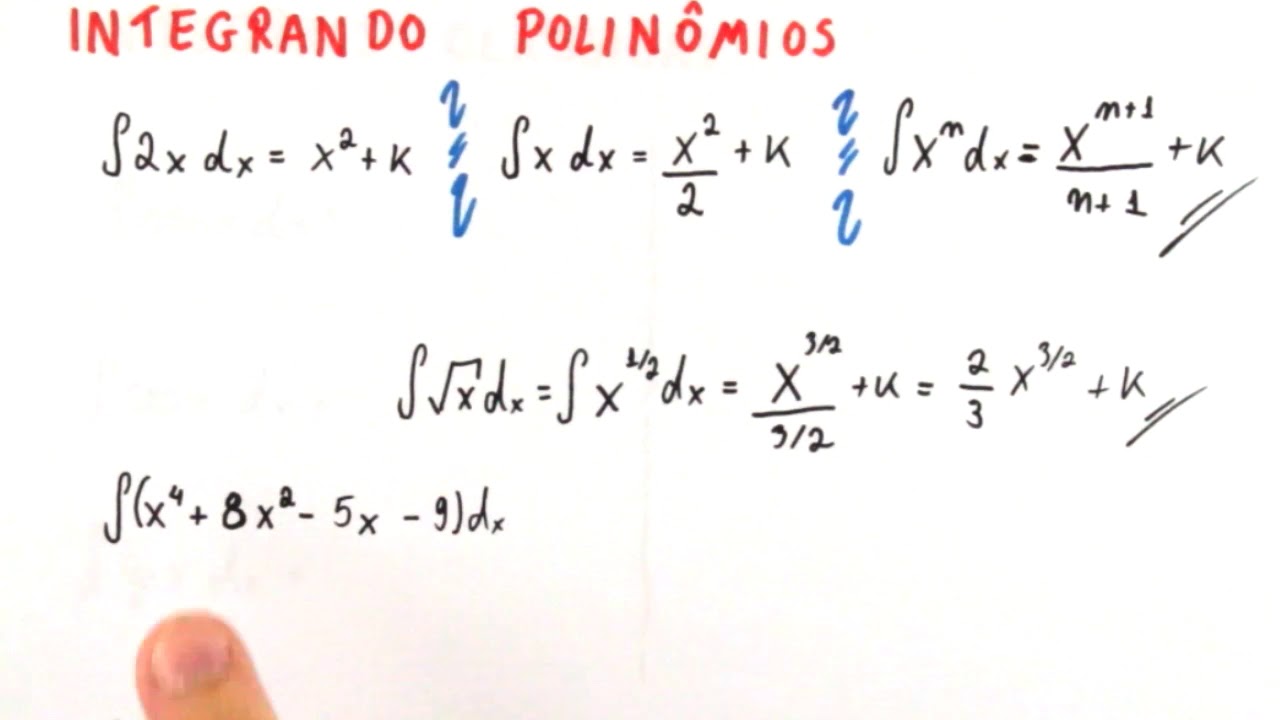 INTEGRANDO POLINÔMIOS
∫2x dx = x² + K ∫x dx = x²/2 + K ∫xⁿdx = xⁿ⁺¹/n+1 + K
∫√x dx = ∫x^1/2 dx = x^3/2/3/2 + K = 2/3 x^3/2 + K
∫(x⁴ + 8x² - 5x - 9)dx